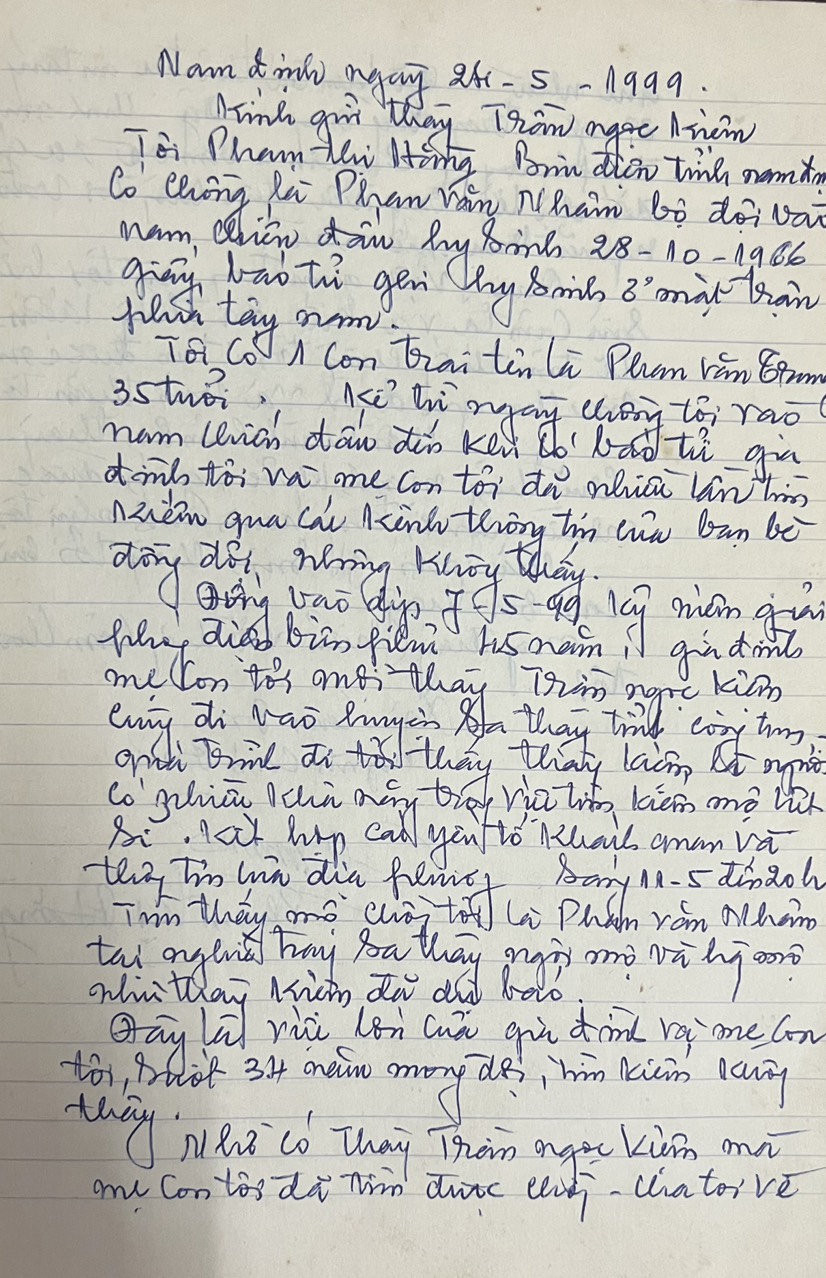 Nam định ngày 24 - 5 - 1999.
Kính gửi thầy Trần ngọc Kiêm
Tôi Phạm thị Hồng Bưu điện tỉnh nam định
Có chồng là Phan Văn Nhâm bộ đội vào
nam, chiến đấu hy sinh 28-10-1966
giấy báo tử ghi hy sinh ở mặt trận
phía tây nam.
Tôi Có 1 Con trai tên là Phan văn
35 tuổi. Kể từ ngày chồng tôi vào
nam chiến đấu đến khi có báo tử gia
đình tôi và mẹ con tôi đã nhiều lần tìm
Kiếm qua các kênh thông tin của bạn bè
đồng đội, nhưng không thấy.
Đúng vào dịp 7-5-99 kỷ niệm giải
phóng điện biên phủ 45 năm, gia đình
mẹ con tôi mời thầy Trần ngọc Kiêm
cùng đi vào huyện Sa thầy tỉnh công tum.
quá trình đi tôi thấy thầy kiêm là người
có nhiều khả năng trong việc tìm kiếm mộ liệt
sĩ. Kết hợp các yếu tố khách quan và
thông tin của địa phương Sáng 11-5 đến 20h
Tìm thấy mộ chồng tôi là Phan văn Nhâm
tại nghĩa trang Sa thầy ngôi mộ và mộ
như thầy Kiêm đã dự báo.
Đây là việc lớn của gia đình và mẹ con
tôi, Suốt 34 năm mong đợi, tìm kiếm không
thấy.
Nhờ có Thầy Trần ngọc Kiêm mà
mẹ con tôi đã tìm được chồng - cha tôi về